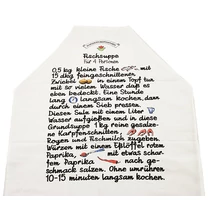 Fischsuppe
für 4 Personen
0,5 kg kleine Fische mit
15 dkg feingeschnittener
Zwiebel in einem Topf tun
mit so vielem Wasser daß es
eben bedeckt. Eine Stunde
lang langsam kochen, dass
durch einem Sieb drücken.
Diesen Sulc mit einem Liter
Wasser aufgießen und in diese
Grundsuppe 1 kg reine gesalz-
ene Karpfenschnitten,
Rogen und Fischmilch zugeben.
Würzen mit einem Eßlöffel rotem
Paprika, mit etwas schar-
fem Paprika nach ge-
schmack salzen. Ohne umrühren
10-15 minuten langsam kochen.